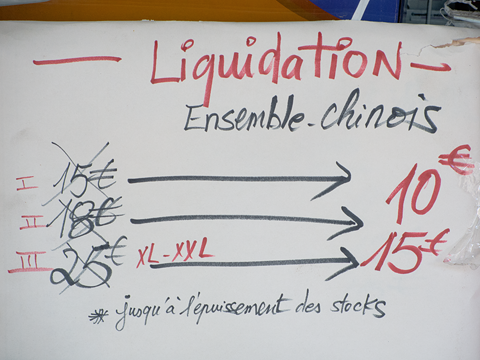 Liquidation
Ensemble-chinois
I 15€ 10€
II 18€
III 25€ XL-XXL 15€
* jusqu'à l'épuissement des stocks